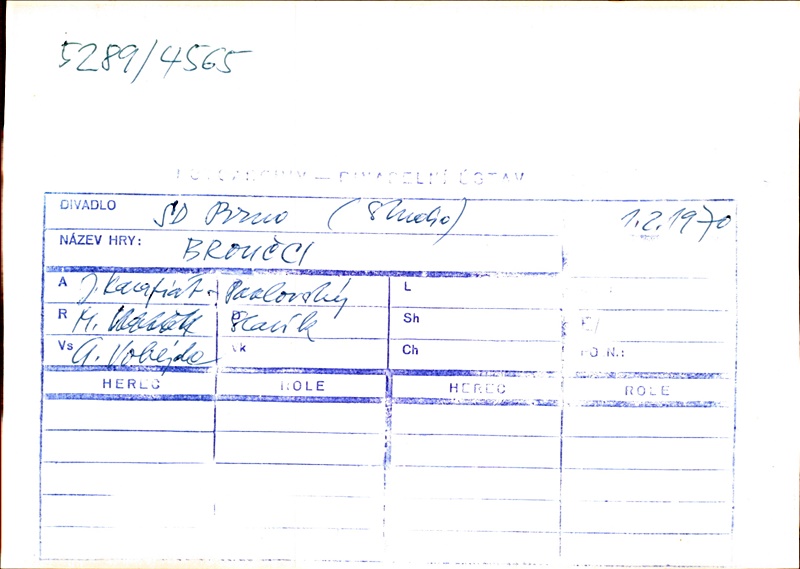 5289/4565
FOTOARCHIV — DIVADELNÍ ÚSTAV
DIVADLO SD Brno (Studio) 1.2.1970
NÁZEV HRY: BROUČCI
A J. Karafiát - Pavlovský L
R M. Slavík Sh
Vs A. Vobejda Vk Ch PO N.:
HEREC ROLE HEREC ROLE